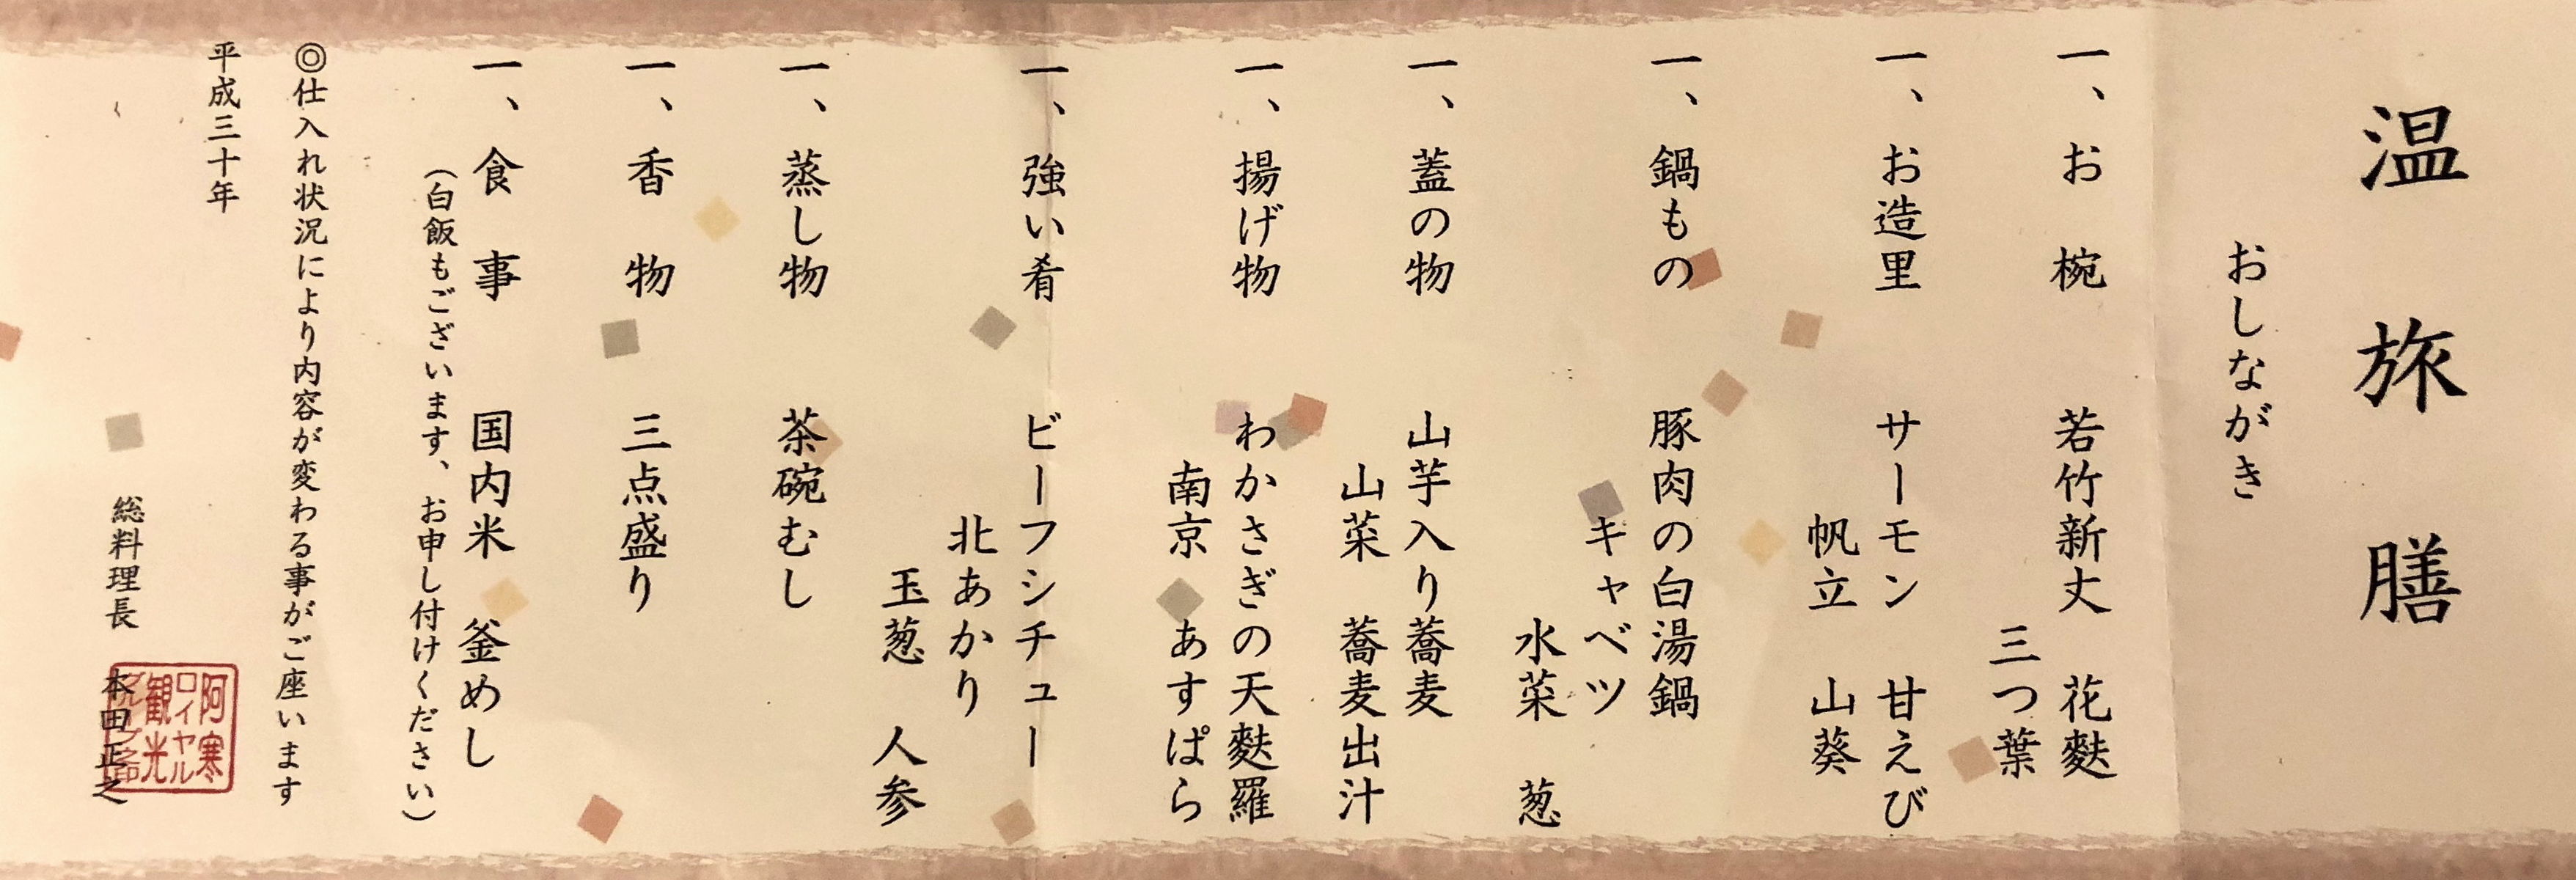 温旅膳
おしながき
一、お椀　若竹新丈　花麩
三つ葉
一、お造里　サーモン　甘えび
帆立　山葵
一、鍋もの　豚肉の白湯鍋
キャベツ
水菜　葱
一、蓋の物　山芋入り蕎麦
山菜　蕎麦出汁
一、揚げ物　わかさぎの天麩羅
南京　あすぱら
一、強い肴　ビーフシチュー
北あかり
玉葱　人参
一、蒸し物　茶碗むし
一、香物　三点盛り
一、食事　国内米　釜めし
（白飯もございます、お申し付けください）
◎仕入れ状況により内容が変わる事がご座います
平成三十年
総料理長　本田正之
阿寒
ロイヤル
観光